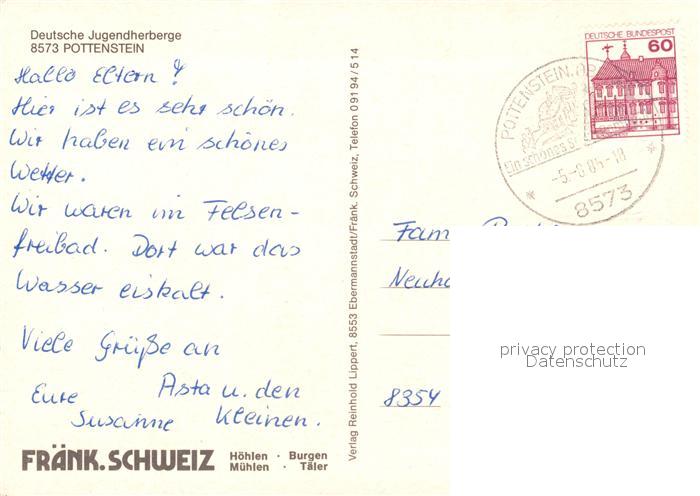 Deutsche Jugendherberge
8573 POTTENSTEIN
Hallo Eltern!
Hier ist es sehr schön.
Wir haben ein schönes
Wetter.
Wir waren im Felsen-
freibad. Dort war das
Wasser eiskalt.
Viele Grüße an
Asta u. den
Kleinen.
Eure
Susanne
FRÄNK. SCHWEIZ
Höhlen · Burgen
Mühlen · Täler
Verlag Reinhold Lippert, 8553 Ebermannstadt/Fränk. Schweiz, Telefon 09194/514
DEUTSCHE BUNDESPOST
60
POTTENSTEIN
Ein schönes
8573
Fam.
8354
privacy protection
Datenschutz